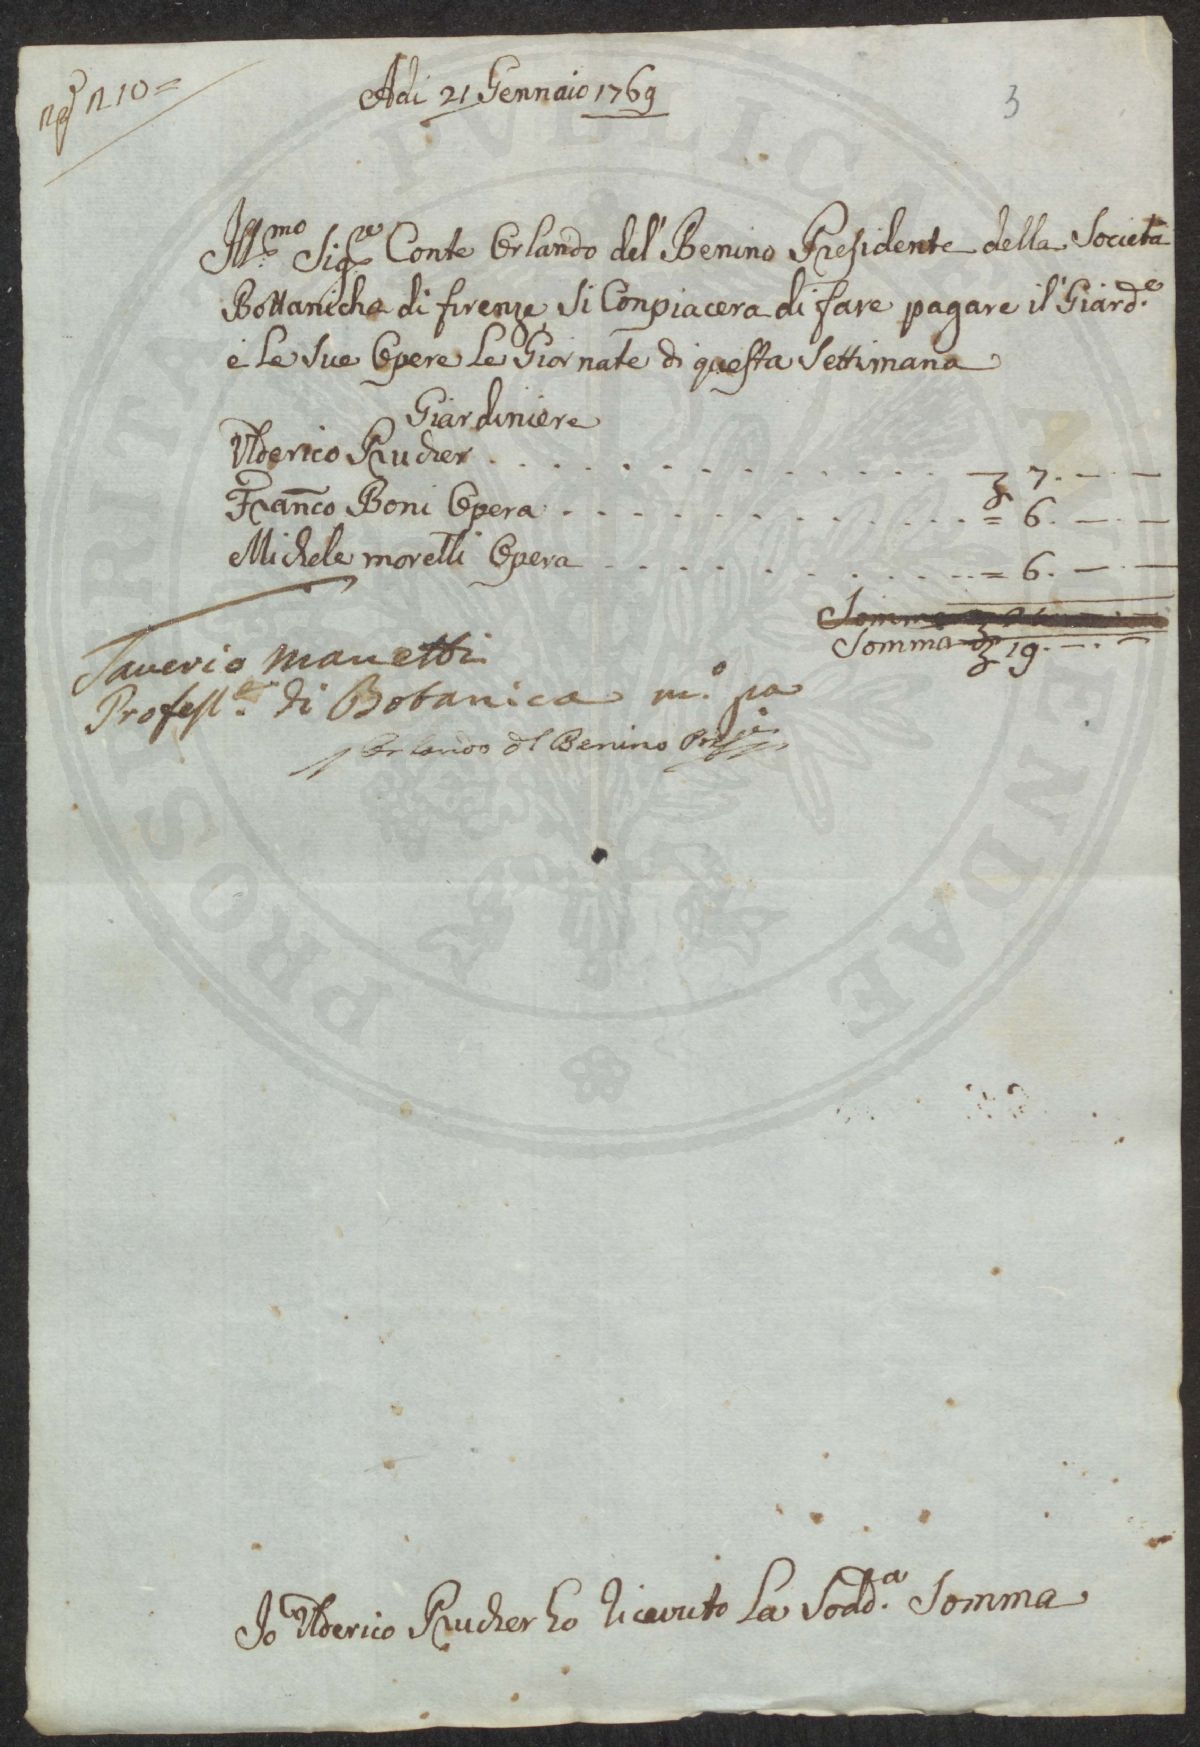 n 10 =
Adi 21 Gennaio 1769
3
Ill:mo Sig:re Conte Orlando del' Benino Presidente della Societa
Bottanicha di firenze, Si Conpiacera di fare pagare il' Giard.e
e Le Sue Opere Le Giornate di questa Settimana
Giardiniere
Ulderico Prucher . . . . . . . . . . . . 7. — —
Franco Boni Opera . . . . . . . . . . . . = 6. — —
Michele moretti Opera . . . . . . . . . . . . = 6. — —
Somma
Somma 19. — —
Saverio Manetti
Profess.e di Botanica m.o pa
Orlando del Benino
Io Ulderico Prucher ho ricevuto La Sodd.a Somma
PROSPERITATI PVBLICAE AVGENDAE